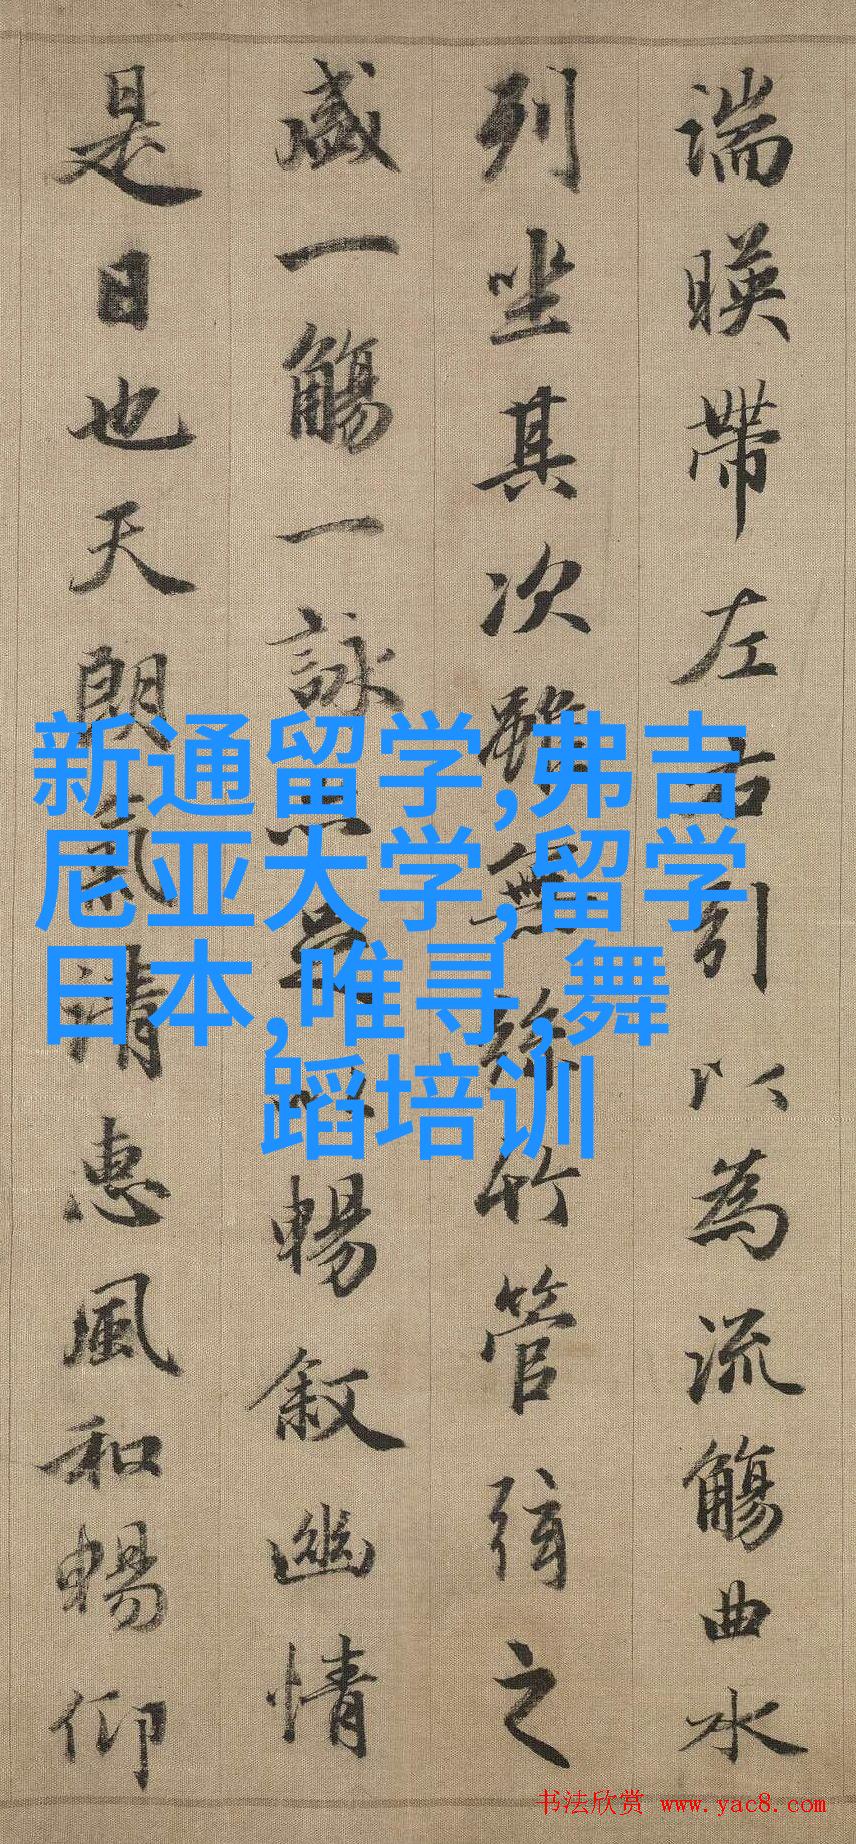 湍暎帶左右引以為流觴曲水
列坐其次雖無絲竹管弦之
盛一觴一詠亦足以暢叙幽情
是日也天朗氣清惠風和暢仰
新通留学,弗吉
尼亚大学,留学
日本,唯寻,舞
蹈培训
书法欣赏 www.yac8.com